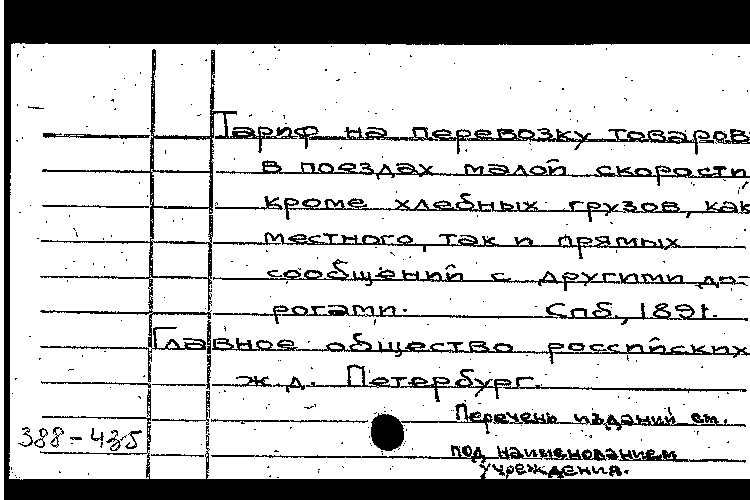 Тариф на перевозку товаров
в поездах малой скорости
кроме хлебных грузов, как
местного, так и прямых
сообщений с другими до-
рогами. Спб., 1891.
Главное общество российских
ж.д. Петербург.
Перечень изданий см.
под наименованием
учреждения.
388-435